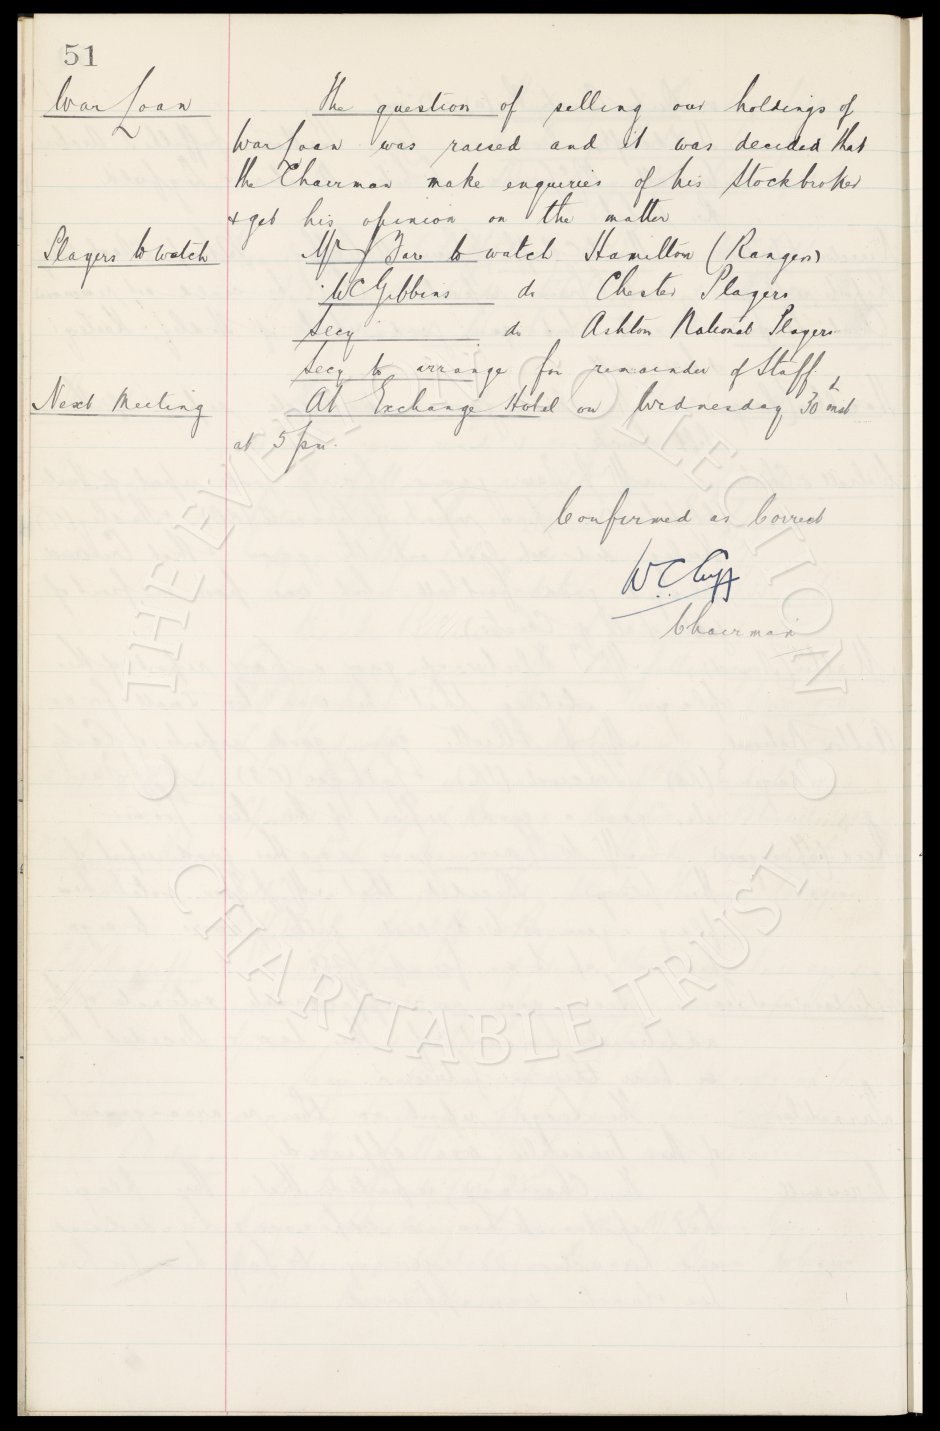 51
War Loan
The question of selling our holdings of
War Loan was raised and it was decided that
the Chairman make enquiries of his Stockbroker
& get his opinion on the matter
Players to watch
Mr J Fare to watch Hamilton (Rangers)
" W C Gibbins do Chester Players
Secy do Ashton National Players
Secy to arrange for remainder of Staff.
Next Meeting
At Exchange Hotel on Wednesday 30th inst
at 5 pm.
Confirmed as Correct
W. C. Cuff
Chairman
THE EVERTON COLLECTION
CHARITABLE TRUST